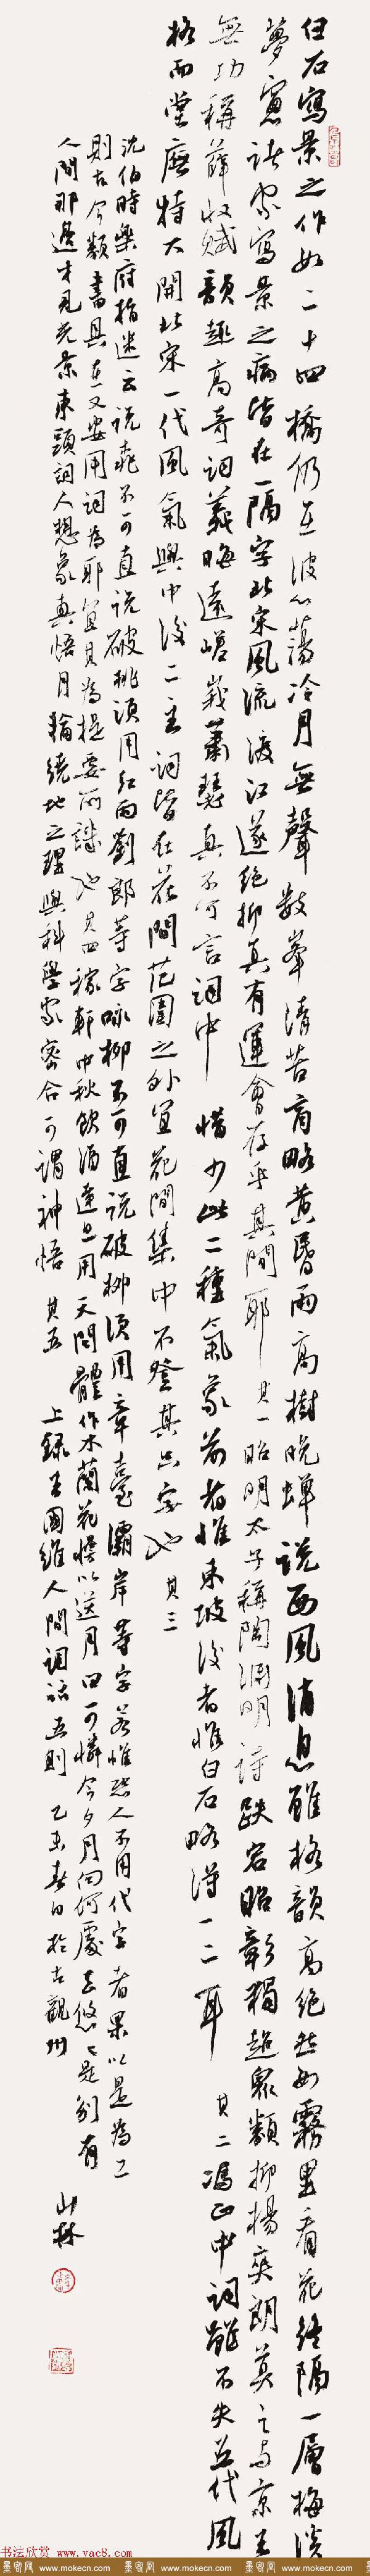 白石寫景之作如二十四橋仍在波心蕩冷月無聲數峯清苦商略黃昏雨高樹晚蟬說西風消息雖格韻高絕然如霧里看花終隔一層梅溪
夢窗諸家寫景之病皆在一隔字北宋風流渡江遂絕抑真有運會存乎其間耶 其一 昭明太子稱陶淵明詩跌宕昭彰獨超眾類抑揚爽朗莫之与京王
無功稱薛收賦韻趣高奇詞義晦遠嵯峩蕭瑟真不可言詞中惜少此二種氣象前者惟東坡後者惟白石略得一二耳 其二 馮正中詞雖不失五代風
格而堂廡特大開北宋一代風氣與中後二主詞皆在花間范圍之外宜花間集中不登其只字也 其三
沈伯時樂府指迷云說桃不可直說破桃須用紅雨劉郎等字咏柳不可直說破柳須用章臺灞岸等字若惟恐人不用代字者果以是為工
則古今類書具在又安用詞為耶宜其為提要所譏也 其四 稼軒中秋飲酒達旦用天問體作木蘭花慢以送月曰可憐今夕月向何處去悠悠是别有
人間那邊才見光景東頭詞人想象真悟月輪繞地之理與科學家密合可謂神悟 其五 上錄王國維人間詞話五則 乙未春日於古觀州
山林
书法欣赏 www.yac8.com
墨客网 www.mokecn.com 墨客网 www.mokecn.com 墨客网 www.mokecn.com